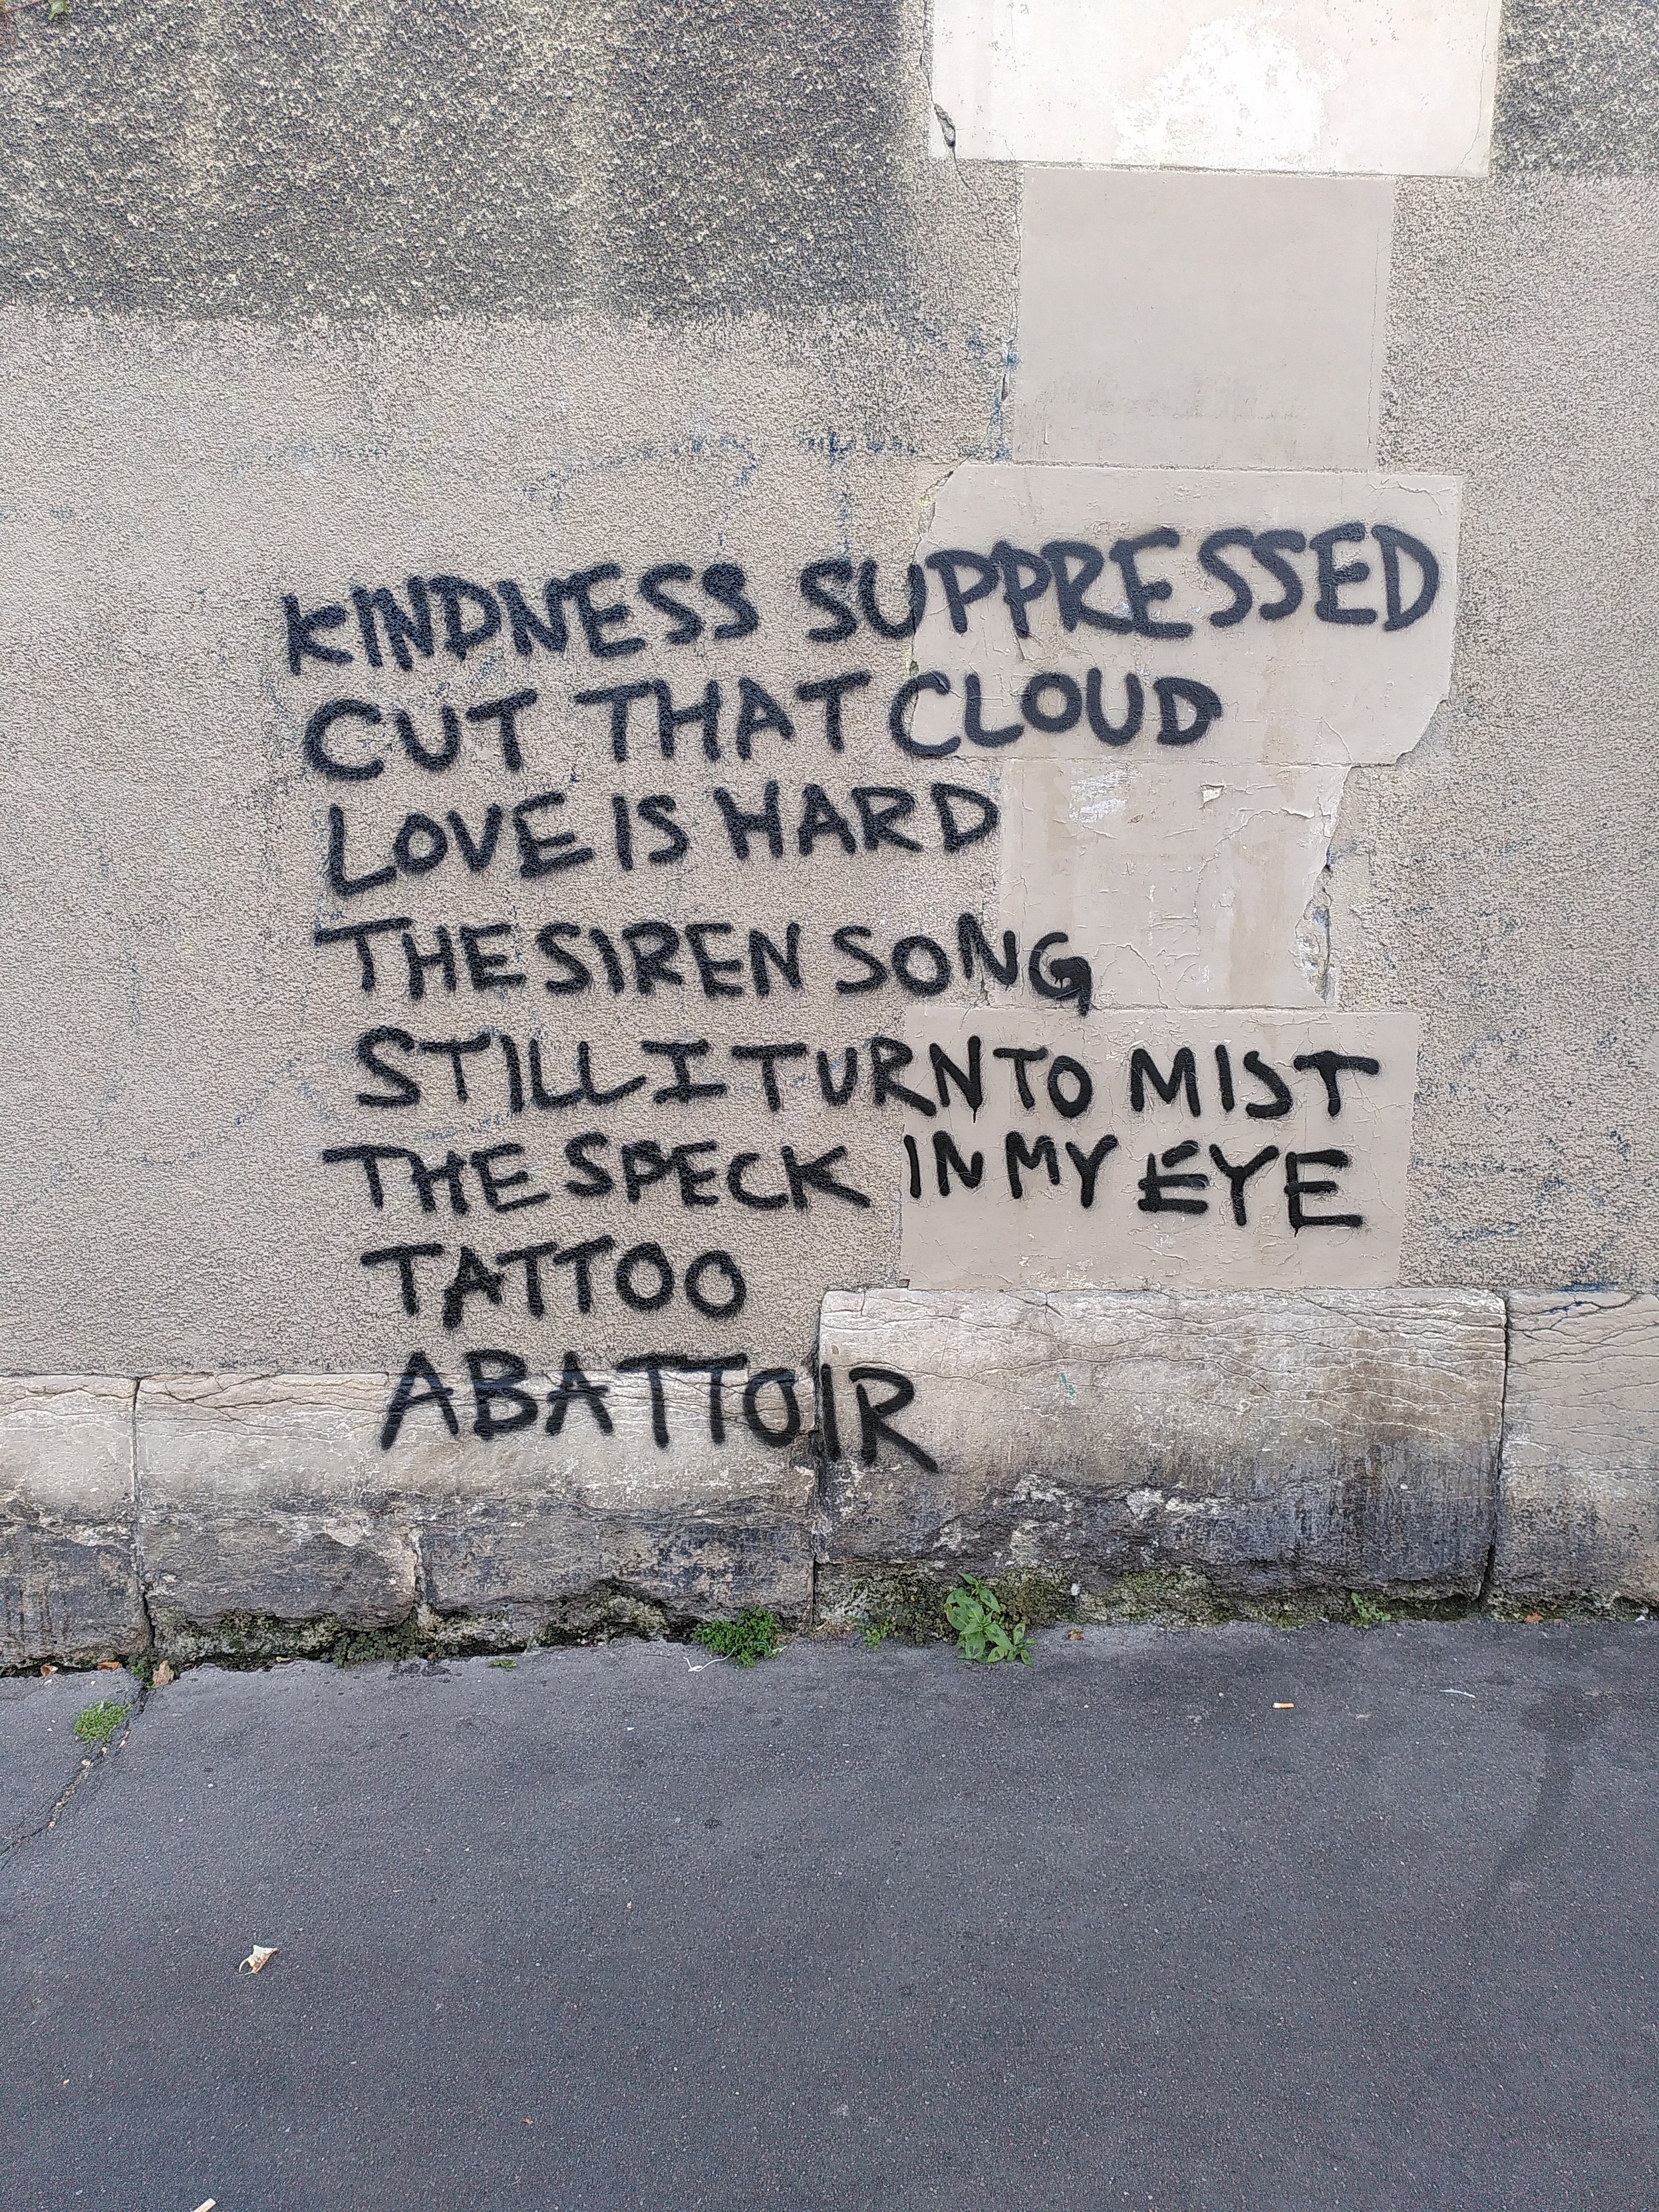 KINDNESS SUPPRESSED
CUT THAT CLOUD
LOVE IS HARD
THE SIREN SONG
STILL I TURN TO MIST
THE SPECK IN MY EYE
TATTOO
ABATTOIR